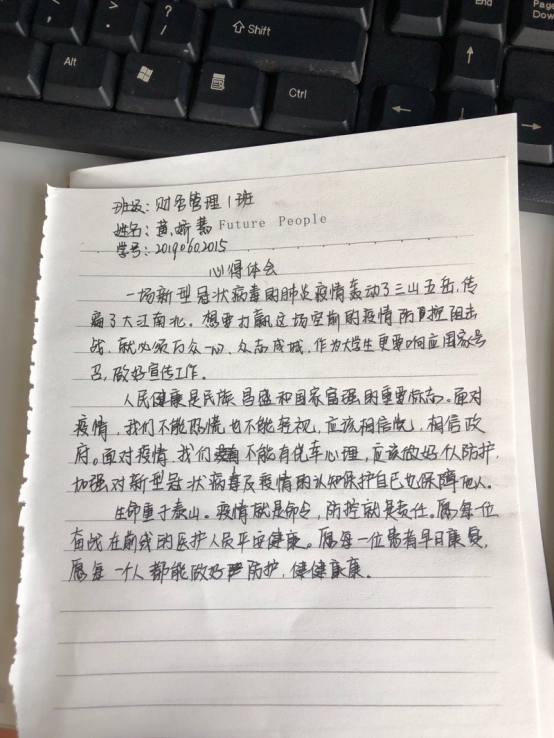 End
Page
Dow
Shift
Alt
Ctrl
班级:财务管理1班
姓名:黄娇 Future People
学号:20190602015
心得体会
一场新型冠状病毒的肺炎疫情轰动了三山五岳,传
遍了大江南北。想要打赢这场空前的疫情防控阻击
战,就必须万众一心、众志成城,作为大学生更要响应国家号
召,做好宣传工作。
人民健康是民族昌盛和国家富强的重要标志。面对
疫情,我们不能恐慌也不能轻视,应该相信党,相信政
府。面对疫情,我们不能有侥幸心理,应该做好个人防护,
加强对新型冠状病毒及疫情的认知保护自己也保障他人。
生命重于泰山。疫情就是命令,防控就是责任。愿每一位
奋战在前线的医护人员平安健康。愿每一位患者早日康复,
愿每一个人都能做好防护,健健康康。